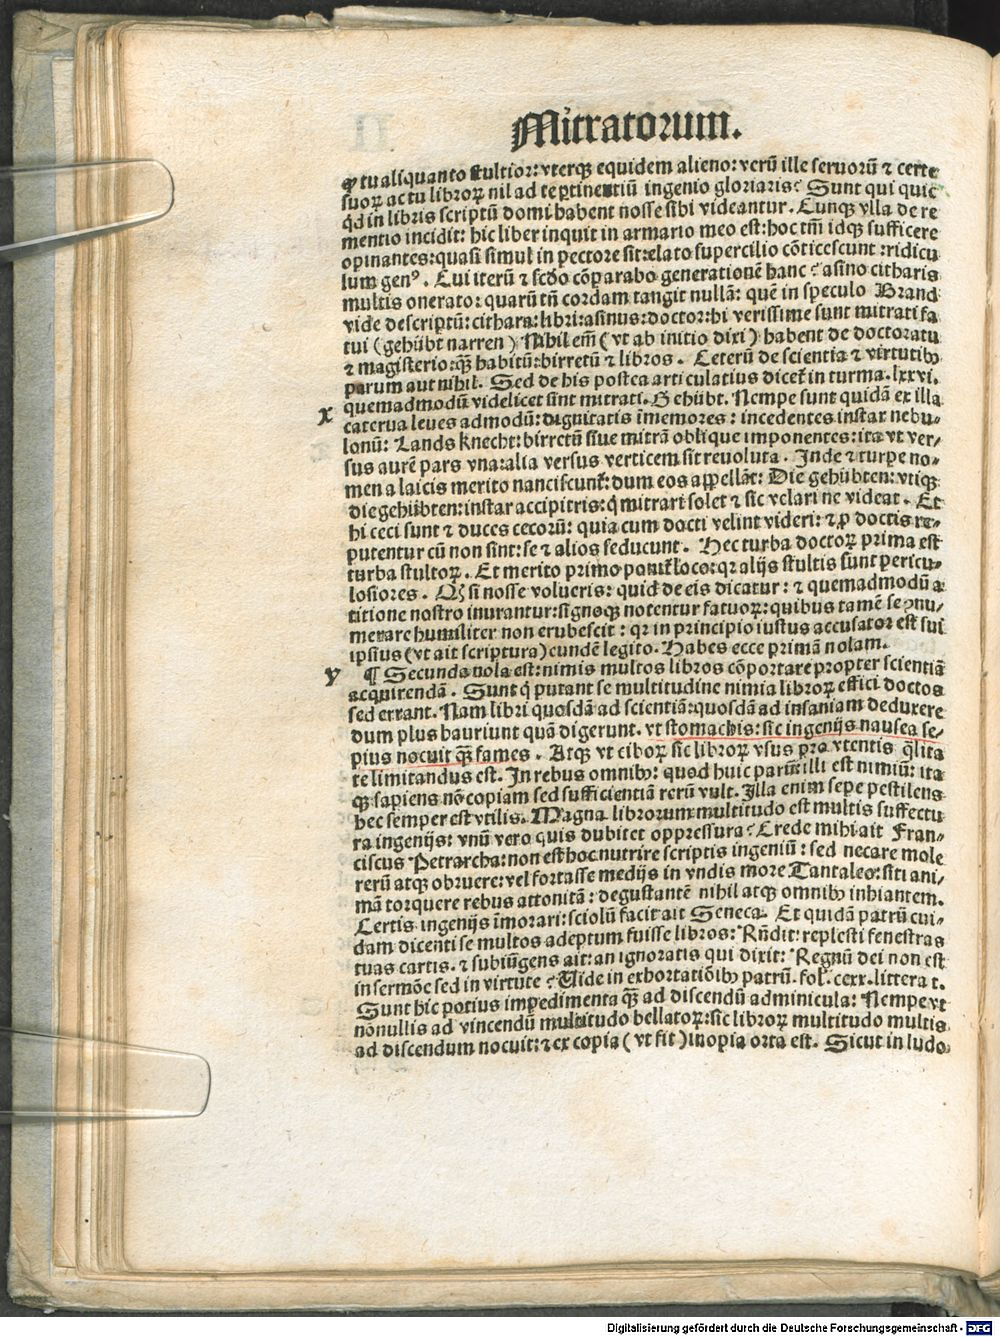 Mitratorum.
ꝙ tu aliquanto stultior: vterqꝫ equidem alieno: verū ille seruorū ⁊ certe
suoꝝ ac tu libroꝝ nil ad te ꝑtinentiū ingenio gloriaris? Sunt qui quic
qd in libris scriptū domi habent nosse sibi videantur. Cunqꝫ vlla de re
mentio incidit: hic liber inquit in armario meo est: hoc tm̄ idqꝫ sufficere
opinantes: quasi simul in pectore sit: elato supercilio cōticescunt: ridicu
lum genꝰ. Cui iterū ⁊ scd̄o cōparabo generationē hanc: asino citharis
multis onerato: quarū tn̄ cordam tangit nullā: quē in speculo Brand
vide descriptū: cithara: libri: asinus: doctor: hi verissime sunt mitrati fa
tui (gehübt narren) Nihil em̄ (vt ab initio dixi) habent de doctoratu
⁊ magisterio: qꝫ̄ habitū: birretū ⁊ libros. Ceterū de scientia ⁊ virtutibꝫ
parum aut nihil. Sed de his postea articulatius dicet̄ in turma. lxxvi.
quemadmodū videlicet sint mitrati. Gehübt. Nempe sunt quidā ex illa
x
caterua leues admodū: dignitatis īmemores: incedentes instar nebu-
lonū: Lands knecht: birretū siue mitrā oblique imponentes: ita vt ver-
sus aurē pars vna: alia versus verticem sit reuoluta. Inde ⁊ turpe no-
men a laicis merito nanciscunt̄: dum eos appellāt: Die gehübten: vtiqꝫ
die gehübten: instar accipitris: q̇ mitrari solet ⁊ sic velari ne videat. Et
hi ceci sunt ⁊ duces cecorū: quia cum docti velint videri: ⁊ ꝓ doctis re-
putentur cū non sint: se ⁊ alios seducunt. Hec turba doctoꝝ prima est
turba stultoꝝ. Et merito primo ponit̄ loco: qꝛ alijs stultis sunt pericu-
losiores. Qꝫ si nosse volueris: quid de eis dicatur: ⁊ quemadmodū a
titione nostro inurantur: signoqꝫ notentur fatuoꝝ: quibus tamē se ꝯnu-
merare humiliter non erubescit: qꝛ in principio iustus accusator est sui
ipsius (vt ait scriptura) eundē legito. Habes ecce primā nolam.
y
¶ Secunda nola est: nimis multos libros cōportare propter scientiā
acquirendā. Sunt q̇ putant se multitudine nimia libroꝝ effici doctos
sed errant. Nam libri quosdā ad scientiā: quosdā ad insaniam deduxere
dum plus hauriunt quā digerunt. vt stomachis: sic ingenijs nausea se-
pius nocuit qꝫ̄ fames. Atqꝫ vt ciboꝝ sic libroꝝ vsus pro vtentis q̄lita
te limitandus est. In rebus omnibꝫ: quod huic parū: illi est nimiū: ita
qꝫ sapiens nō copiam sed sufficientiā rerū vult. Illa enim sepe pestilens
hec semper est vtilis. Magna librorum multitudo est multis suffectu
ra ingenijs: vnū vero quis dubitet oppressura? Crede mihi ait Fran-
ciscus Petrarcha: non est hoc nutrire scriptis ingeniū: sed necare mole
rerū atqꝫ obruere: vel fortasse medijs in vndis more Tantaleo: siti ani-
mā torquere rebus attonitā: degustantē nihil atqꝫ omnibꝫ inhiantem.
Certis ingenijs īmorari: sciolū facit ait Seneca. Et quidā patrū cui-
dam dicenti se multos adeptum fuisse libros: Rn̄dit: replesti fenestras
tuas cartis. ⁊ subiūgens ait: an ignoratis qui dixit: Regnū dei non est
in sermōe sed in virtute? Vide in exhortatiōibꝫ patrū. fol. ccxx. littera t.
Sunt hic potius impedimenta qꝫ̄ ad discendū adminicula: Nempe vt
nōnullis ad vincendū multitudo bellatoꝝ: sic libroꝝ multitudo multis
ad discendum nocuit: ⁊ ex copia (vt fit) inopia orta est. Sicut in ludo
Digitalisierung gefördert durch die Deutsche Forschungsgemeinschaft - DFG